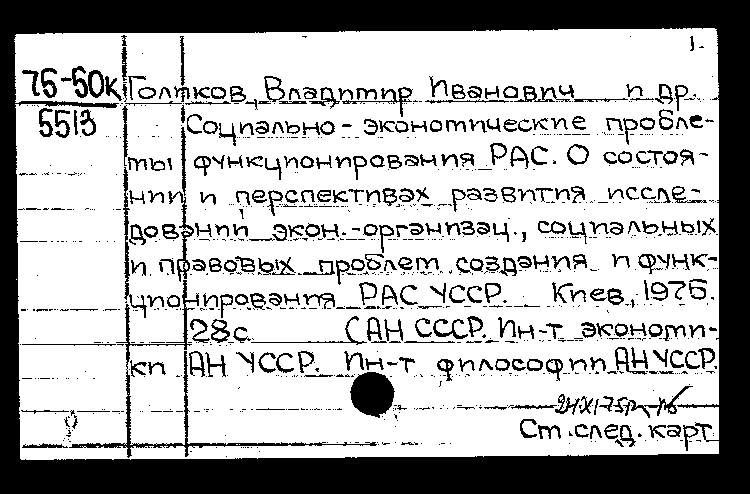 1.
75-50к Голиков, Владимир Иванович и др.
5513 Социально-экономические пробле-
мы функционирования РАС. О состоя-
нии и перспективах развития иссле-
дований экон.-организац., социальных
и правовых проблем создания и функ-
ционирования РАС УССР. Киев, 1975.
28с. (АН СССР. Ин-т экономи-
ки АН УССР. Ин-т философии АН УССР.
См. след. карт.